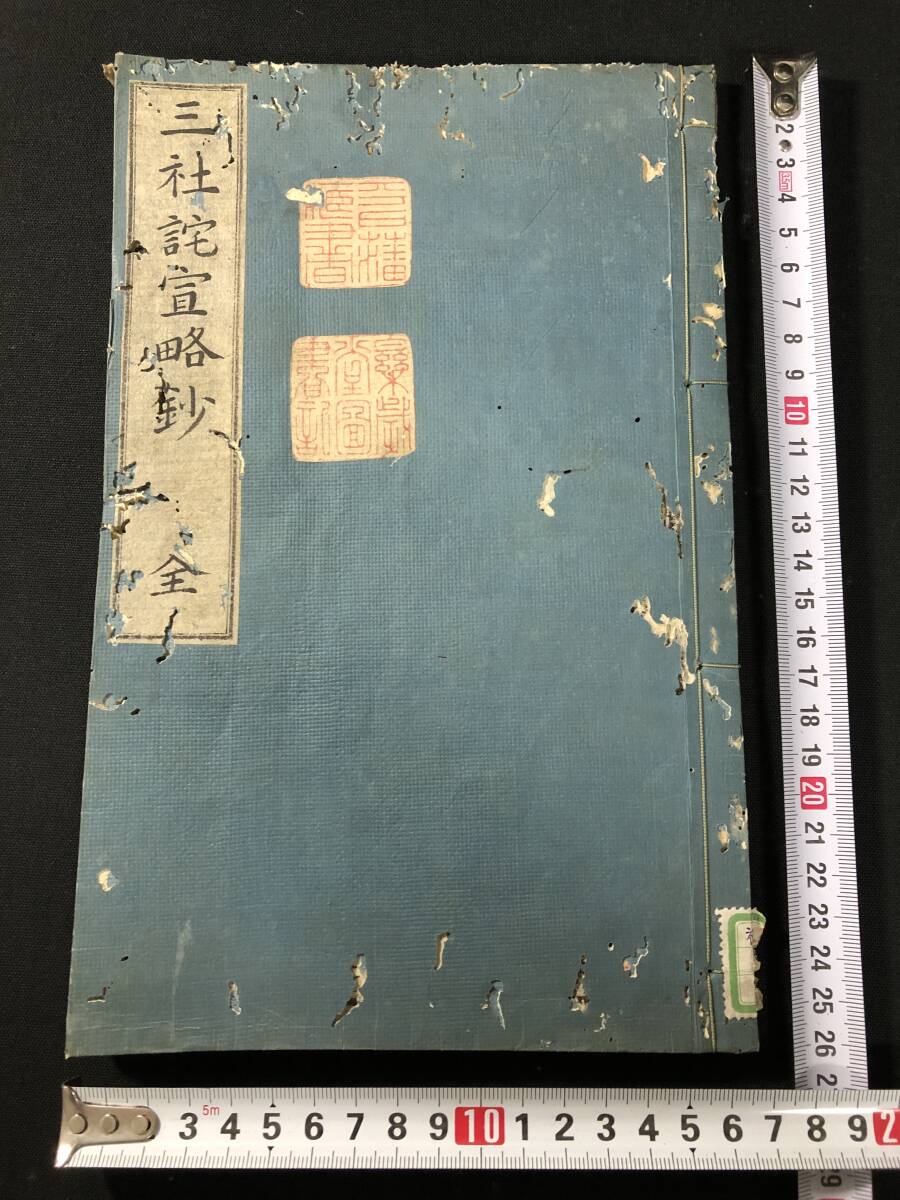 三社詫宣略鈔 全
2 3 4 5 6 7 8 9 10 11 12 13 14 15 16 17 18 19 20 21 22 23 24 25 26 2
3 5m 4 5 6 7 8 9 10 1 2 3 4 5 6 7 8 9 2
9